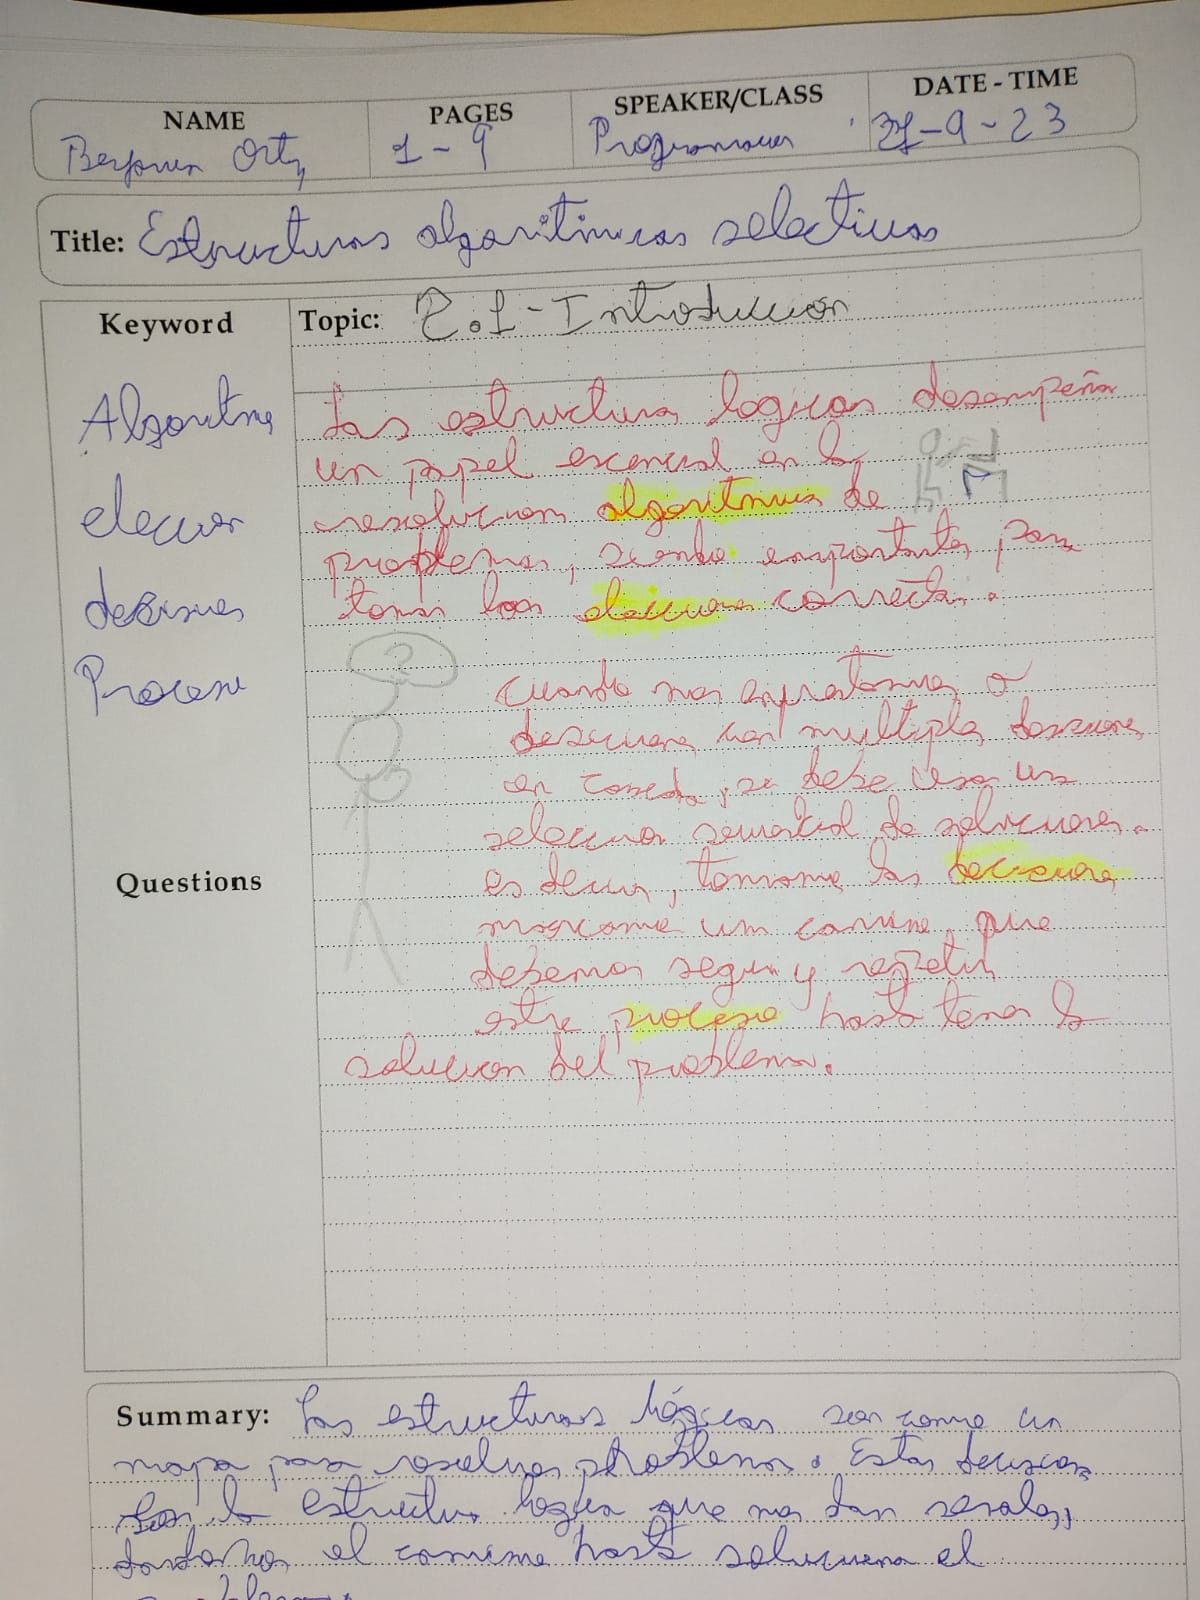 NAME PAGES SPEAKER/CLASS DATE - TIME
Ortiz 1 - 9 Programacion 21-9-23
Title: Estructuras algoritmicas selectivas
Keyword Topic: 2.1 - Introduccion
Algoritmo
eleccion
desiciones
Proceso
Las estructuras logicas desempeñan
un papel escencial en la
resolucion algoritmica de
problemas, siendo importantes para
tomar las elecciones correctas.
Cuando nos enfrentamos a
desiciones con multiples
en , se debe usar una
seleccion de soluciones.
es decir, tomamos las decisiones
un camino que
debemos seguir y repetir
este proceso hasta tener la
solucion del problema.
Questions
Summary: Las estructuras lógicas son como un
mapa para resolver problemas. Estas
la estructura logica que nos dan señales,
el camino hasta el